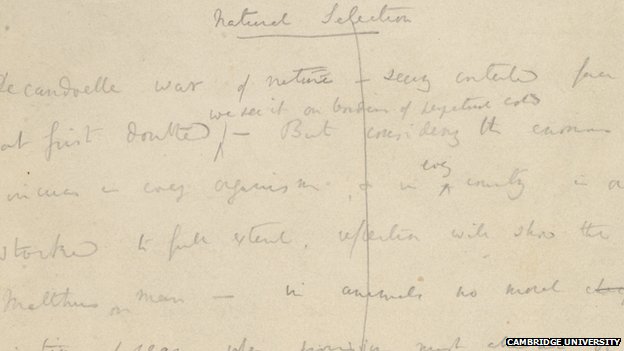 Natural Selection
Decandoelle war of nature – seeing contented face
we see it on borders of perpetual cold
at first doubted – But considering the enormous
increase in every organism & in every country in
stocked to full extent, reflection will show the
Malthus on man – in animals no moral
CAMBRIDGE UNIVERSITY